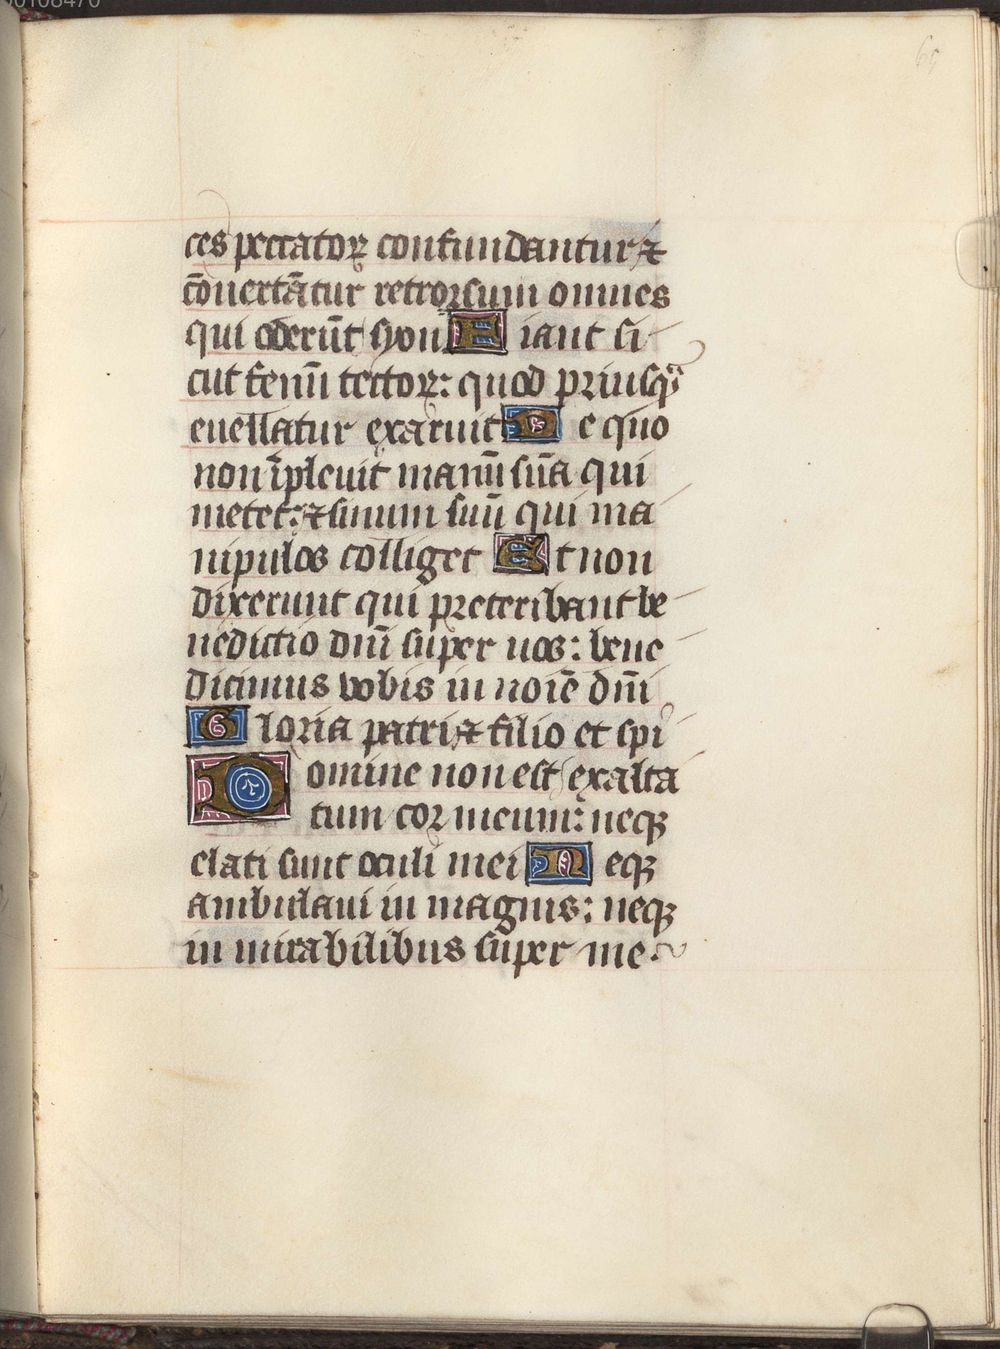 00108470
65
ces peccatoꝝ confundantur ⁊
c̄ouertātur retrorsum omnes
qui oderūt syon Fiant si
cut fenū tectoꝝ: quod priusqᷓ
euellatur exaruit De quo
non īpleuit manū suā qui
metet: ⁊ sinum suū qui ma
nipulos colliget Et non
dixerunt qui preteribant be
nedictio dnī super uos: bene
dicimus vobis in noīe dnī
Gloria patri ⁊ filio et spī
Domine non est exalta
tum cor meum: neqꝫ
elati sunt oculi mei Neqꝫ
ambulaui in magnis: neqꝫ
in mirabilibus super me